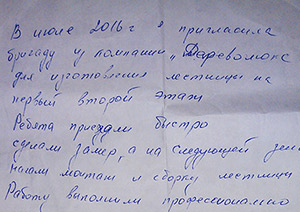 В июле 2016г я пригласила
бригаду из компании „Дереволюкс
для изготовления лестницы на
первый второй этаж
Ребята приехали быстро
сделали замер, а на следующей день
начали монтаж и сборку лестницы
Работу выполнили профессионально